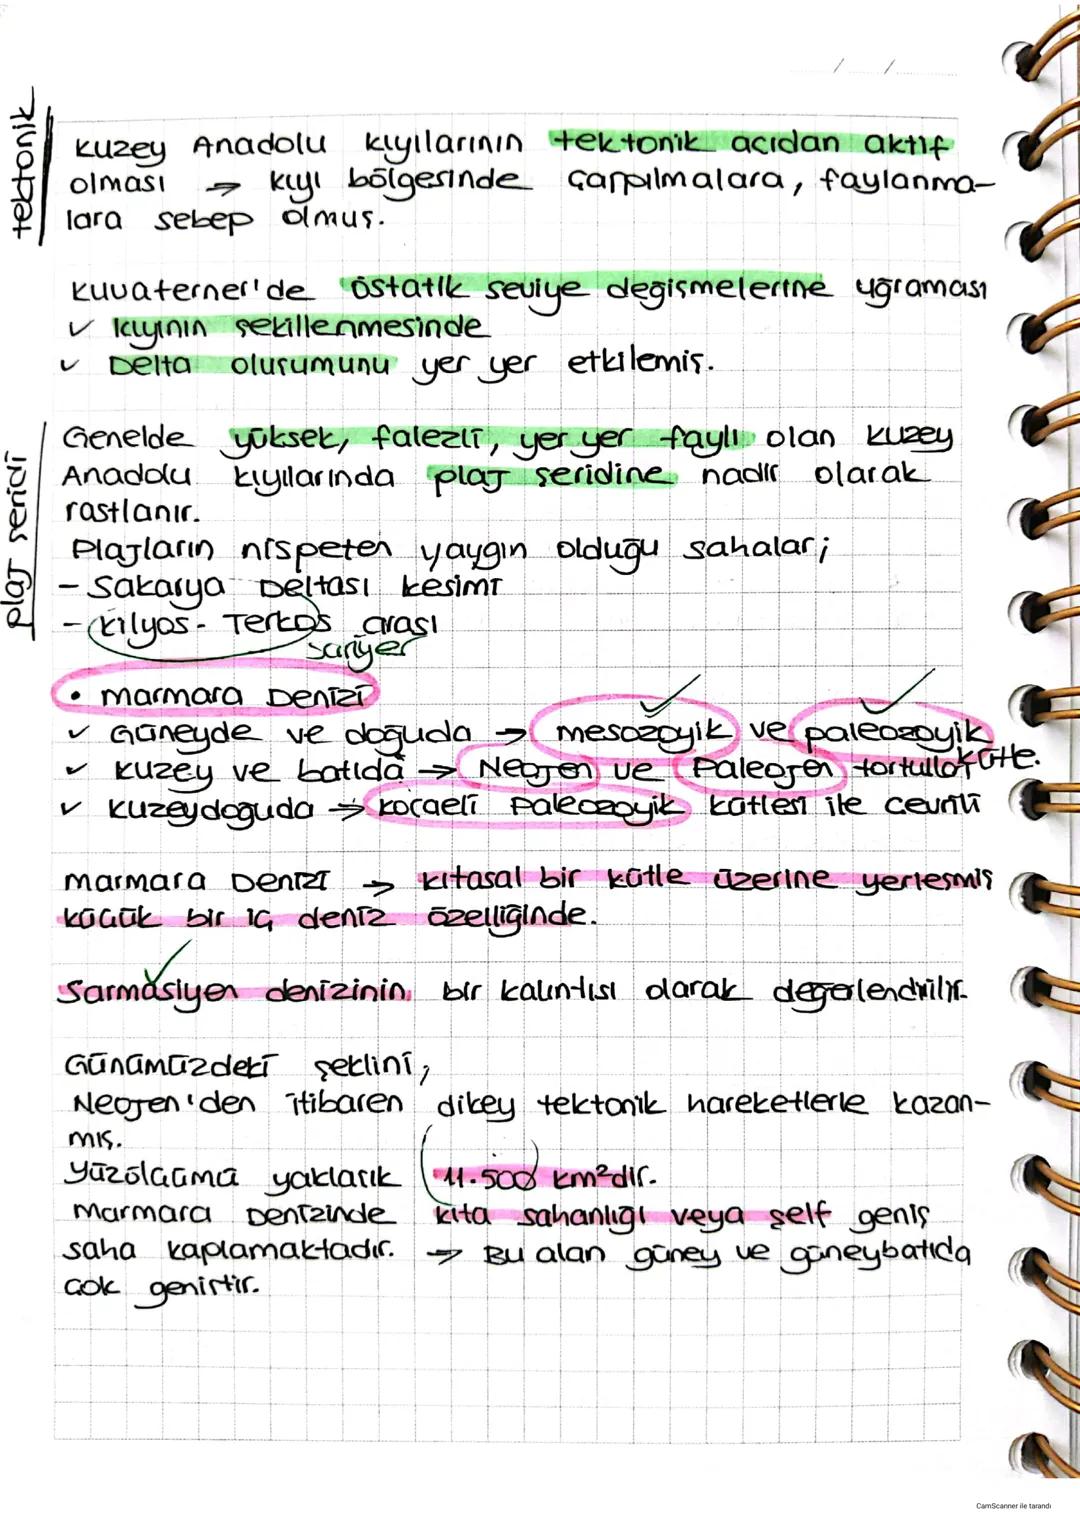 tektonik
Kuzey Anadolu kıyılarının tektonik açıdan aktif
olması → kıyı bölgesinde çarpılmalara, faylanma-
lara sebep olmuş.
Kuvaterner'de östatik seviye değişmelerine uğraması
✓ kıyının şekillenmesinde
✓ Delta oluşumunu yer yer etkilemiş.
plaj şeridi
Genelde yüksek, falezli, yer yer faylı olan kuzey
Anadolu kıyılarında plaj şeridine nadir olarak
rastlanır.
Plajların nispeten yaygın olduğu sahalar;
- Sakarya Deltası kesimi
- Kilyos - Terkos arası
Sarıyer
• Marmara Denizi
✓ Güneyde ve doğuda → mesozoyik ve paleozoyik kütle.
✓ Kuzey ve batıda → Neojen ve Paleojen tortullar
✓ Kuzeydoğuda → Kocaeli Paleozoyik kütlesi ile çevrili
Marmara Denizi → kıtasal bir kütle üzerine yerleşmiş
küçük bir iç deniz özelliğinde.
Sarmasiyen denizinin bir kalıntısı olarak değerlendirilir.
Günümüzdeki şeklini;
Neojen'den itibaren dikey tektonik hareketlerle kazan-
mış.
Yüzölçümü yaklaşık 11.500 km²dir.
Marmara Denizinde kıta sahanlığı veya şelf geniş
saha kaplamaktadır. → Bu alan güney ve güneybatıda
çok geniştir.
CamScanner ile tarandı